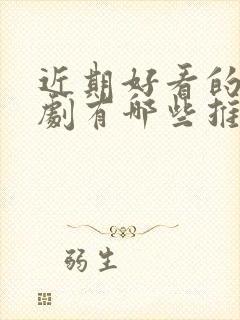 近期好看的
劇有哪些推
弱生